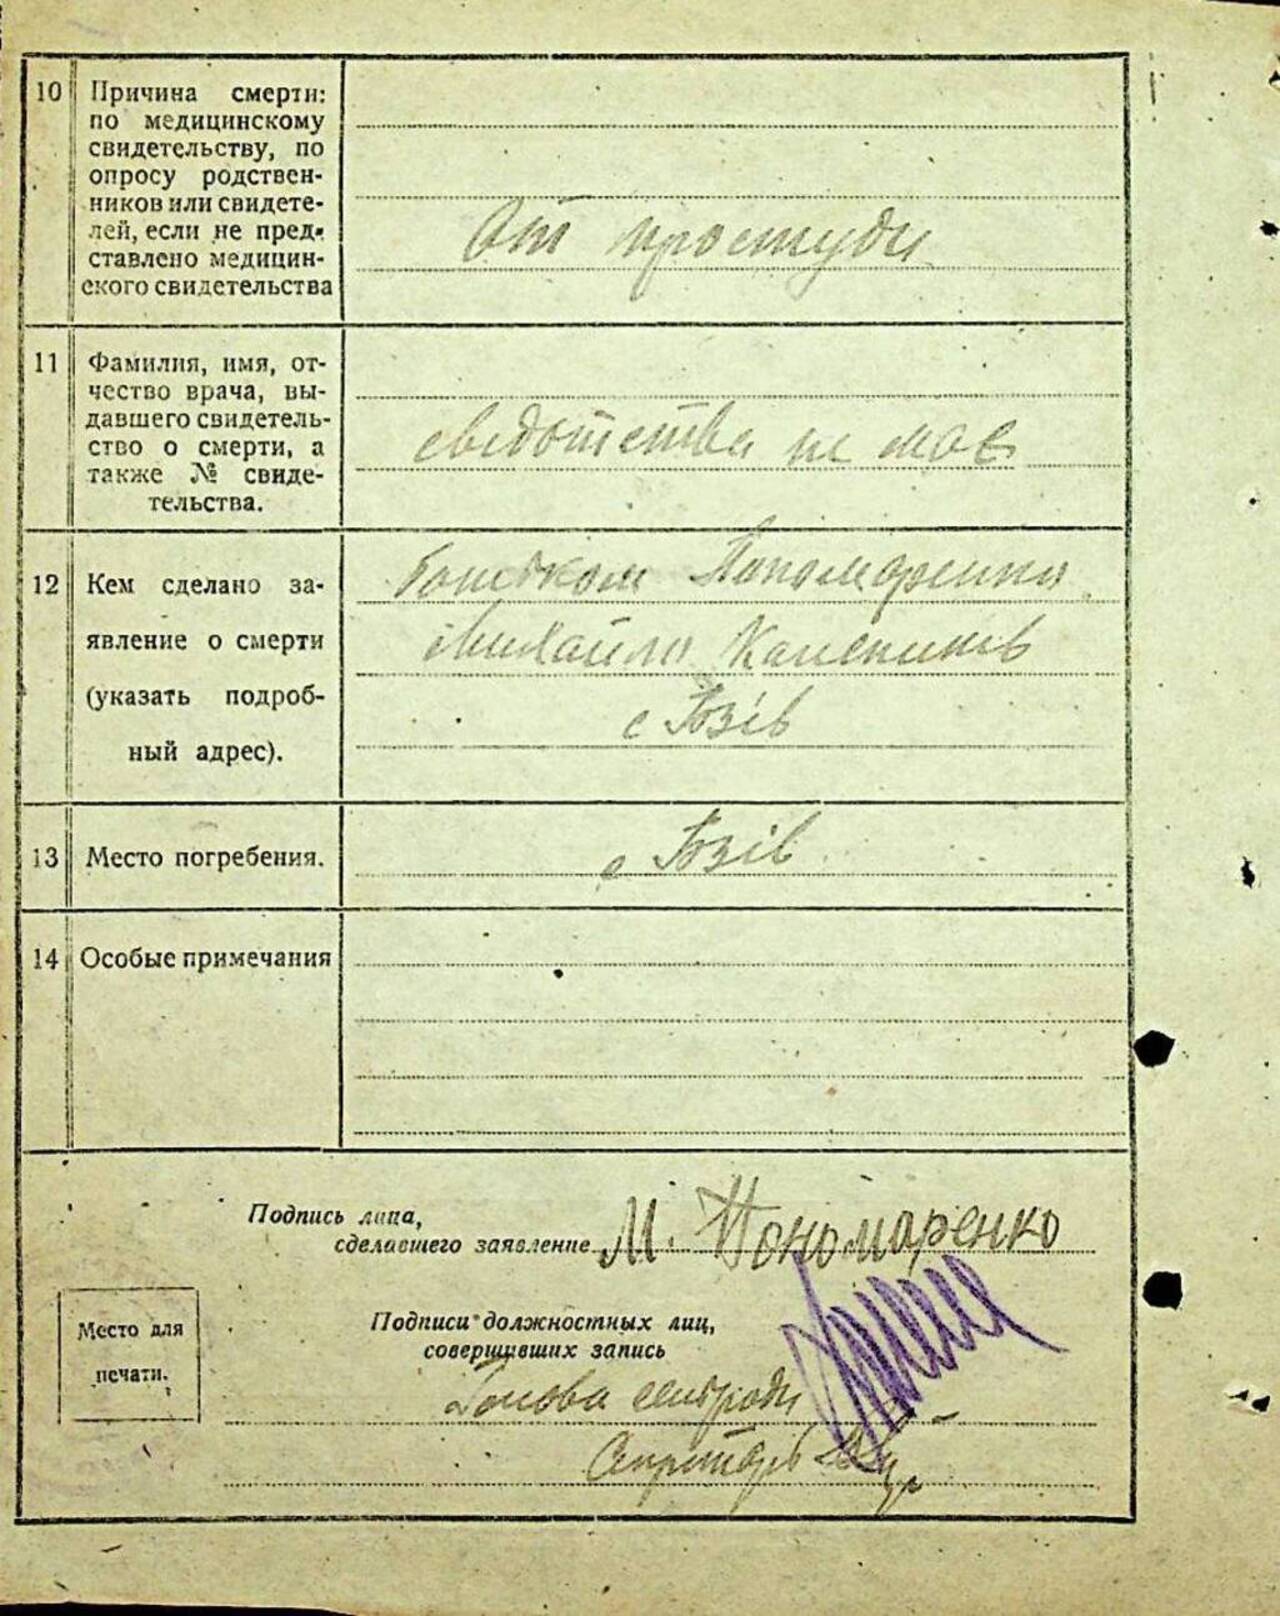 10 Причина смерти:
по медицинскому
свидетельству, по
опросу родствен-
ников или свидете-
лей, если не пред-
ставлено медицин-
ского свидетельства
От простуди
11 Фамилия, имя, от-
чество врача, вы-
давшего свидетель-
ство о смерти, а
также № свиде-
тельства.
не має
12 Кем сделано за-
явление о смерти
(указать подроб-
ный адрес).
Батьком Пономаренко
Михайло
с
13 Место погребения.
с
14 Особые примечания
Подпись лица,
сделавшего заявление М. Пономаренко
Место для
печати.
Подписи должностных лиц,
совершивших запись
Голова сельради
Секретарь